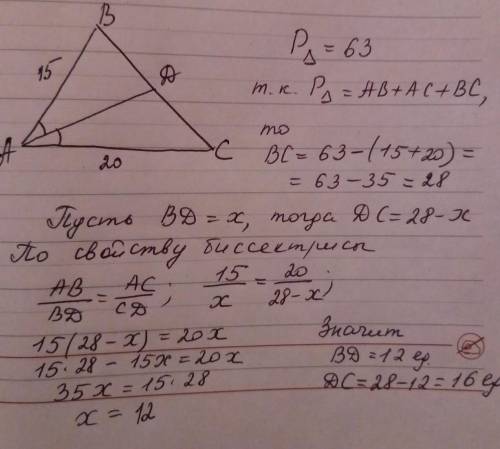 B
15
D
A
20
C
P△ = 63
т.к. P△ = AB + AC + BC,
то
BC = 63 − (15 + 20) =
= 63 − 35 = 28
Пусть BD = x, тогда DC = 28 − x
По свойству биссектрисы
AB/BD = AC/CD; 15/x = 20/28 − x;
15(28 − x) = 20x
15 · 28 − 15x = 20x
35x = 15 · 28
x = 12
Значит
BD = 12 ед.
DC = 28 − 12 = 16 ед